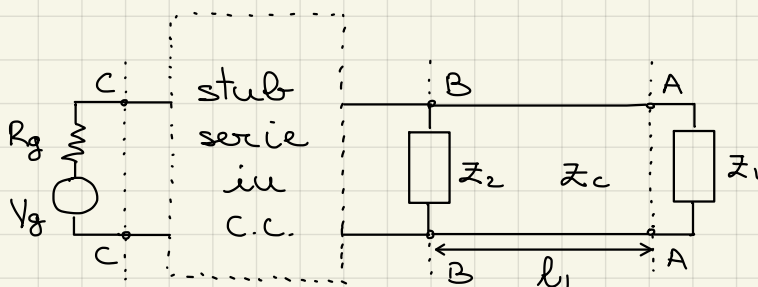 C
stub
serie
in
C.C.
Rg
Vg
C
B
A
Z2
Zc
Z1
B
l1
A